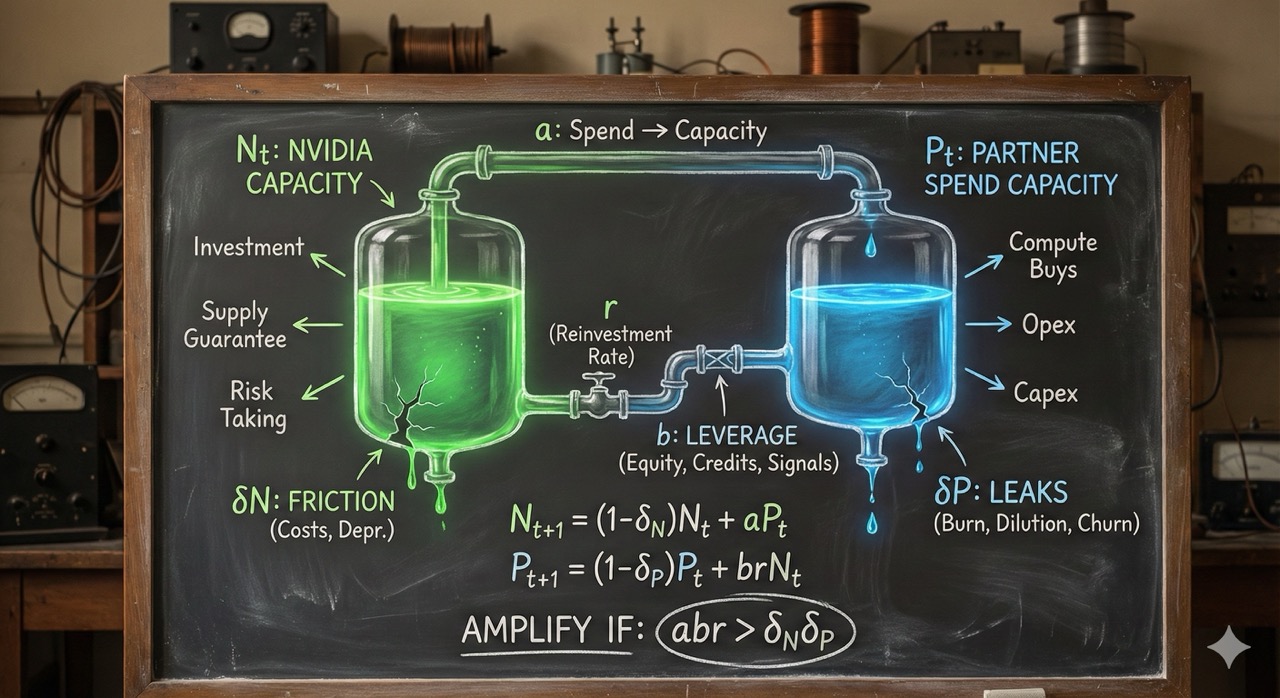 a: Spend → Capacity
Nt: NVIDIA
CAPACITY
Pt: PARTNER
SPEND CAPACITY
Investment
Supply
Guarantee
Risk
Taking
r
(Reinvestment
Rate)
Compute
Buys
Opex
Capex
b: LEVERAGE
(Equity, Credits, Signals)
δN: FRICTION
(Costs, Depr.)
δP: LEAKS
(Burn, Dilution, Churn)
N_{t+1} = (1-δ_N)N_t + aP_t
P_{t+1} = (1-δ_P)P_t + brN_t
AMPLIFY IF: abr > δ_Nδ_P